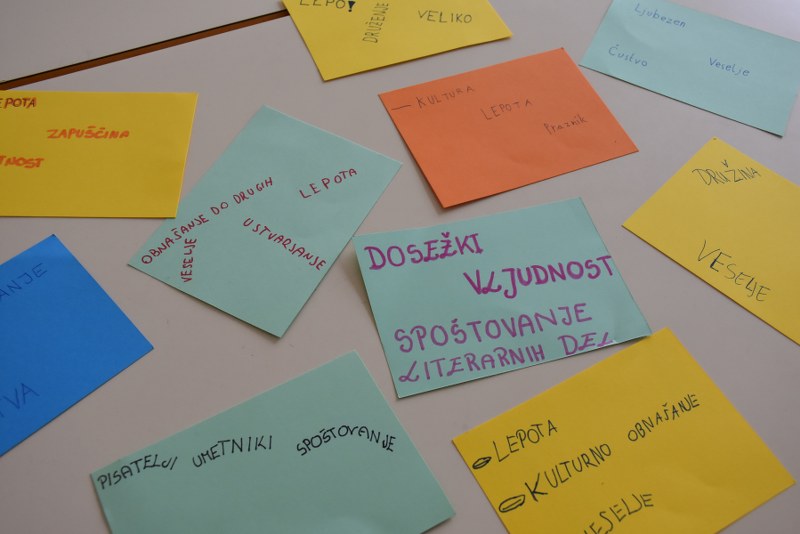 LEPO!
DRUŽENJE
VELIKO
Ljubezen
Čustva
Veselje
EPOTA
ZAPUŠČINA
TNOST
— KULTURA
LEPOTA
Praznik
OBNAŠANJE DO DRUGIH
LEPOTA
VESELJE
USTVARJANJE
DRUŽINA
VESELJE
DOSEŽKI
VLJUDNOST
SPOŠTOVANJE
LITERARNIH DEL
ANJE
TVA
PISATELJI UMETNIKI SPOŠTOVANJE
LEPOTA
KULTURNO OBNAŠANJE
VESELJE